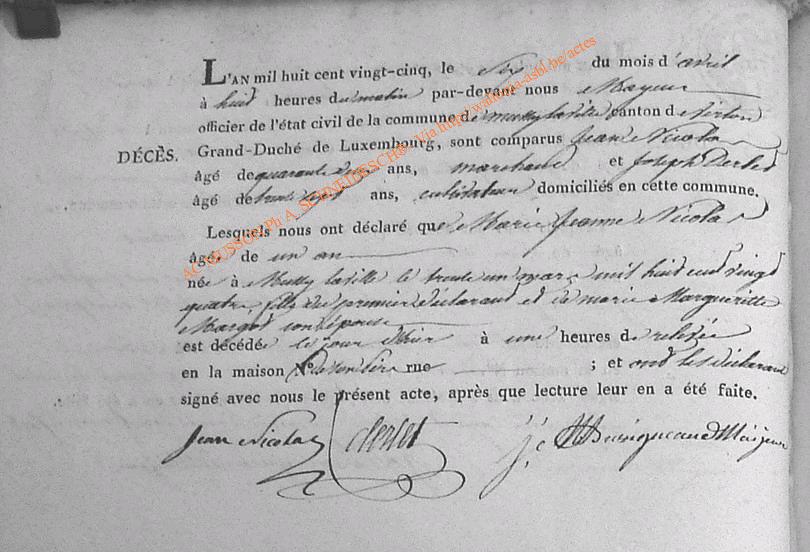 L'AN mil huit cent vingt-cinq, le Six du mois d'avril
à huit heures du matin par-devant nous Mayeur
officier de l'état civil de la commune de mussy la ville canton de virton
DÉCÈS. Grand-Duché de Luxembourg, sont comparus Jean Nicolas
âgé de quarante deux ans, marchand et Joseph
âgé de trente sept ans, cultivateur domiciliés en cette commune.
Lesquels nous ont déclaré que Marie Jeanne Nicolas
âgée de un an
née à Mussy laville le trente un mars mil huit cent vingt
quatre, fille du premier déclarant et de marie Margueritte
Margot son épouse
est décédée le jour d'hier à une heures de relevée
en la maison N° rue ; et ont les déclarant
signé avec nous le présent acte, après que lecture leur en a été faite.
Jean Nicolas Mayeur
Via http://wallonia-asbl.be/actes